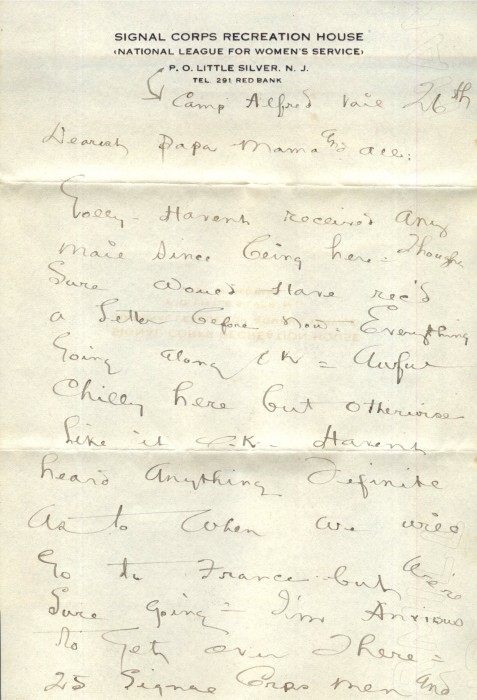 SIGNAL CORPS RECREATION HOUSE
(NATIONAL LEAGUE FOR WOMEN'S SERVICE)
P. O. LITTLE SILVER, N. J.
TEL. 291 RED BANK
Camp Alfred Vail 26th
Dearest Papa Mama and all:
Golly - Havent received any
mail since being here = Thought
Sure would Have rec'd
a letter before now = Everything
Going along OK = Awful
Chilly here but otherwise
like it O.K. - Havent
heard anything Definite
As to when we will
Go to France but we're
Sure going = I'm Anxious
to get over There =
25 Signal Corps men and